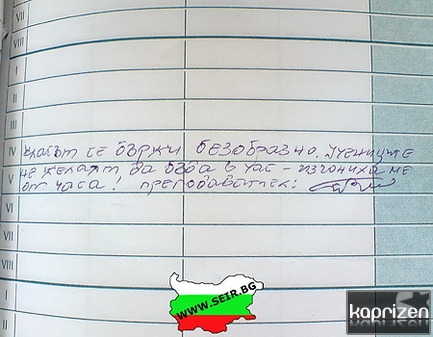 VII
VIII
I
II
III
IV Класът се държи безобразно. Учениците
не желаят да бъда в час - изгониха ме
V от часа! преподавател:
VI
VII
VIII
I
II
WWW.SEIR.BG
kaprizen